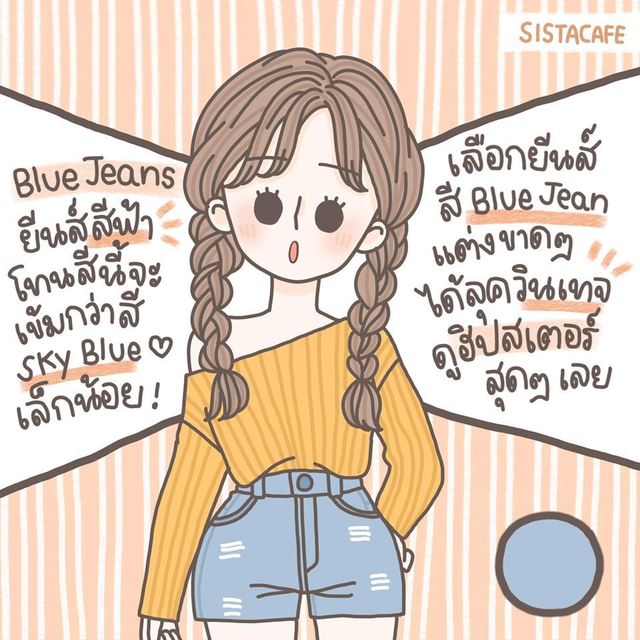 SISTACAFE
Blue Jeans
ยีนส์สีฟ้า
โทนสีนี้จะ
เข้มกว่าสี
SKY Blue ♡
เล็กน้อย!
เลือกยีนส์
สี Blue Jean
แต่งขาดๆ
ได้ลุควินเทจ
ดูฮิปสเตอร์
สุดๆ เลย